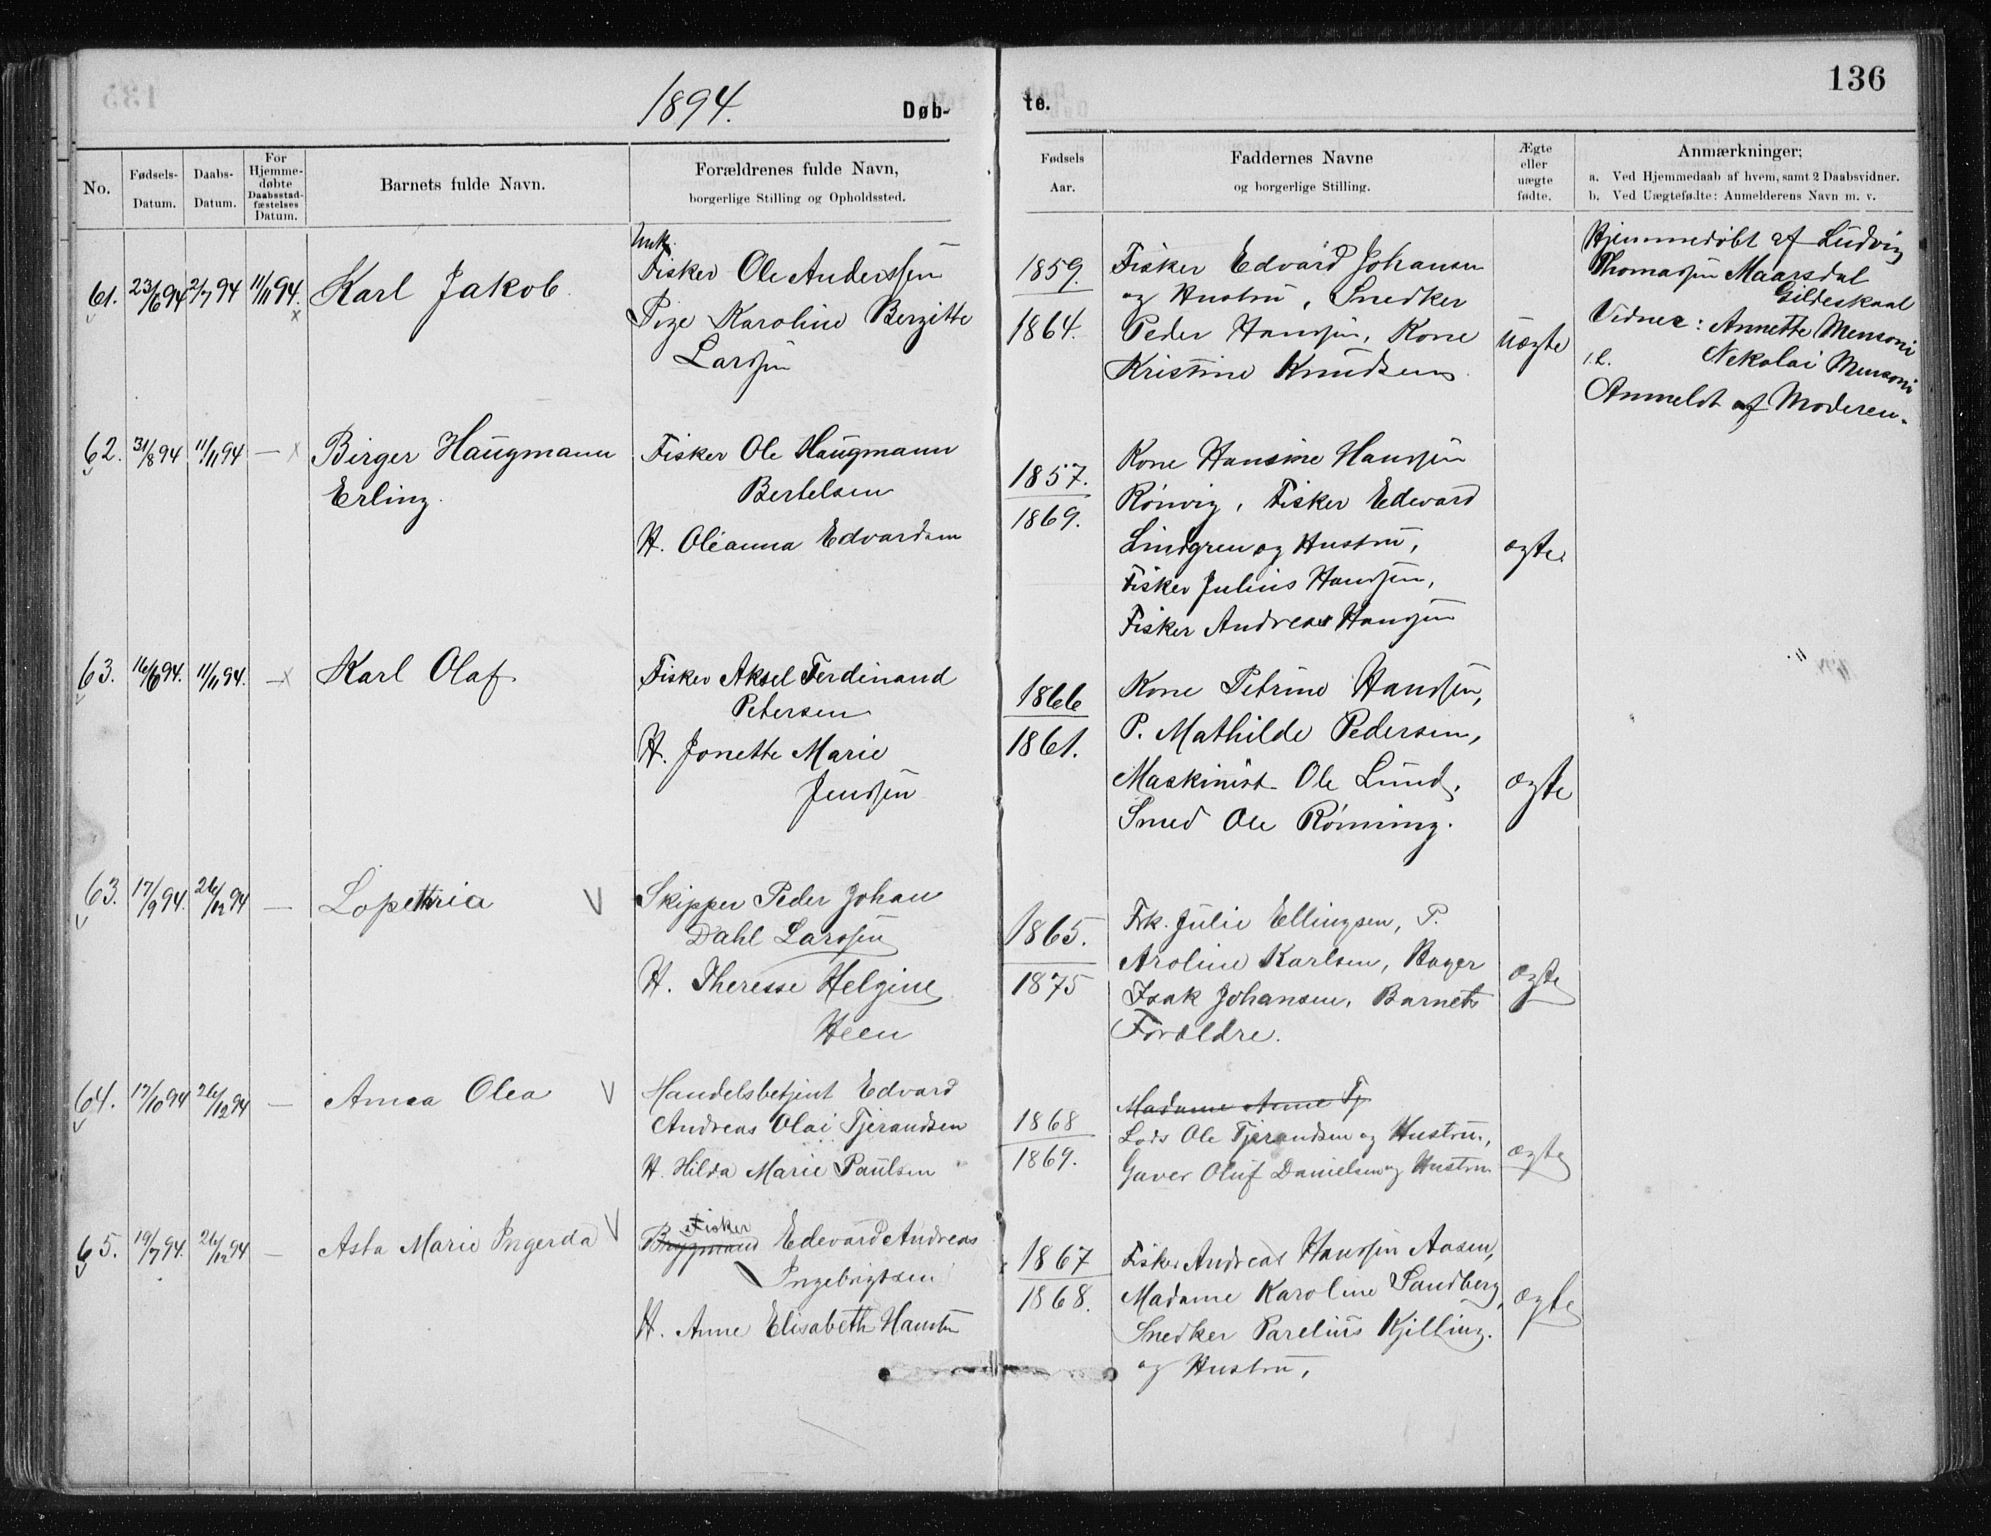 136
1894.
Døb-
te.
No.
Fødsels-
Datum.
Daabs-
Datum.
For
Hjemme-
døbte
Daabsstad-
fæstelses
Datum.
Barnets fulde Navn.
Forældrenes fulde Navn,
borgerlige Stilling og Opholdssted.
Fødsels
Aar.
Faddernes Navne
og borgerlige Stilling.
Ægte
eller
uægte
fødte.
Anmærkninger;
a. Ved Hjemmedaab af hvem, samt 2 Daabsvidner.
b. Ved Uægtefødte: Anmelderens Navn m. v.
61. 23/6 94 2/7 94 11/11 94.
Karl Jakob.
Unk.
Fisker Ole Anderssen
Pige Karoline Bergitte
Larssen
1859.
1864.
Fisker Edvard Johansen
og Hustru, Snedker
Peder Hanssen, Kone
Kristine Knudsen
uægte
Hjemmedøbt af Ludvig
Thomassen Maarsdal
Gildeskaal
Vidner: Annette Mensoni
Nekolai Mensoni
Anmeldt af Moderen.
62. 31/8 94 11/11 94 —
Birger Haugmann
Erling.
Fisker Ole Haugmann
Bertelsen
H. Oleanna Edvardsen
1857.
1869.
Kone Hansine Hanssen
Rönvig, Fisker Edevard
Lindgren og Hustru,
Fisker Julius Hanssen,
Fisker Andreas Hanssen
ægte
63. 16/6 94. 11/11 94. —
Karl Olaf
Fisker Aksel Ferdinand
Petersen
H. Jonette Marie
Jenssen
1866
1861.
Kone Petrine Hanssen,
P. Mathilde Pedersen,
Maskinist Ole Lund,
Smed Ole Rönning.
ægte
63. 17/9 94. 26/12 94 —
Lopettria
Skipper Peder Johan
Dahl Larssen
H. Theresse Helgine
Heen
1865.
1875
Frk. Julie Ellingsen, P.
Aroline Karlsen, Bager
Isak Johansen, Barnets
Forældre.
ægte
64. 17/10 94 26/12 94 —
Amea Olea
Handelsbetjent Edvard
Andreas Olai Tjerandsen
H. Hilda Marie Paulsen
1868
1869.
Madame Anne Tj
Lods Ole Tjerandsen og Hustru,
Gaver Oluf Danielsen og Hustru
ægte
65. 19/7 94. 26/12 94 —
Asta Marie Ingerda
Fisker
Bryggmand Edevard Andreas
Ingebrigtsen
H. Anne Elisabeth Hansen
1867
1868.
Fisker Andreas Hanssen Aasen,
Madame Karoline Sandberg,
Snedker Parelius Kjelling.
og Hustru,
ægte